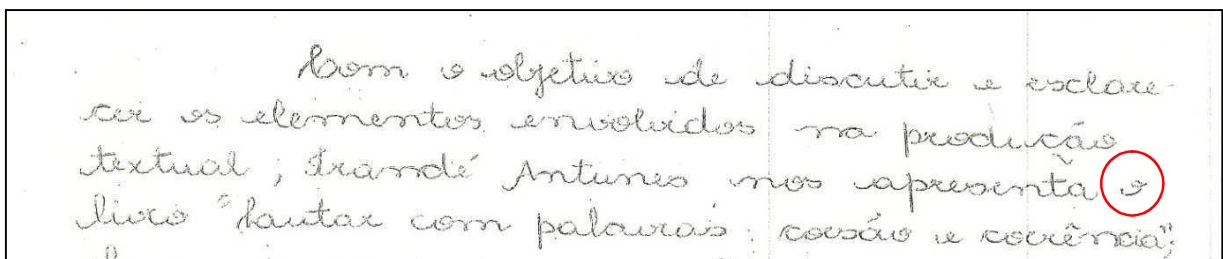 Com o objetivo de discutir e esclare-
cer os elementos envolvidos na produção
textual, Irandé Antunes nos apresenta o
livro "Lautar com palavras: coesão e coerência",